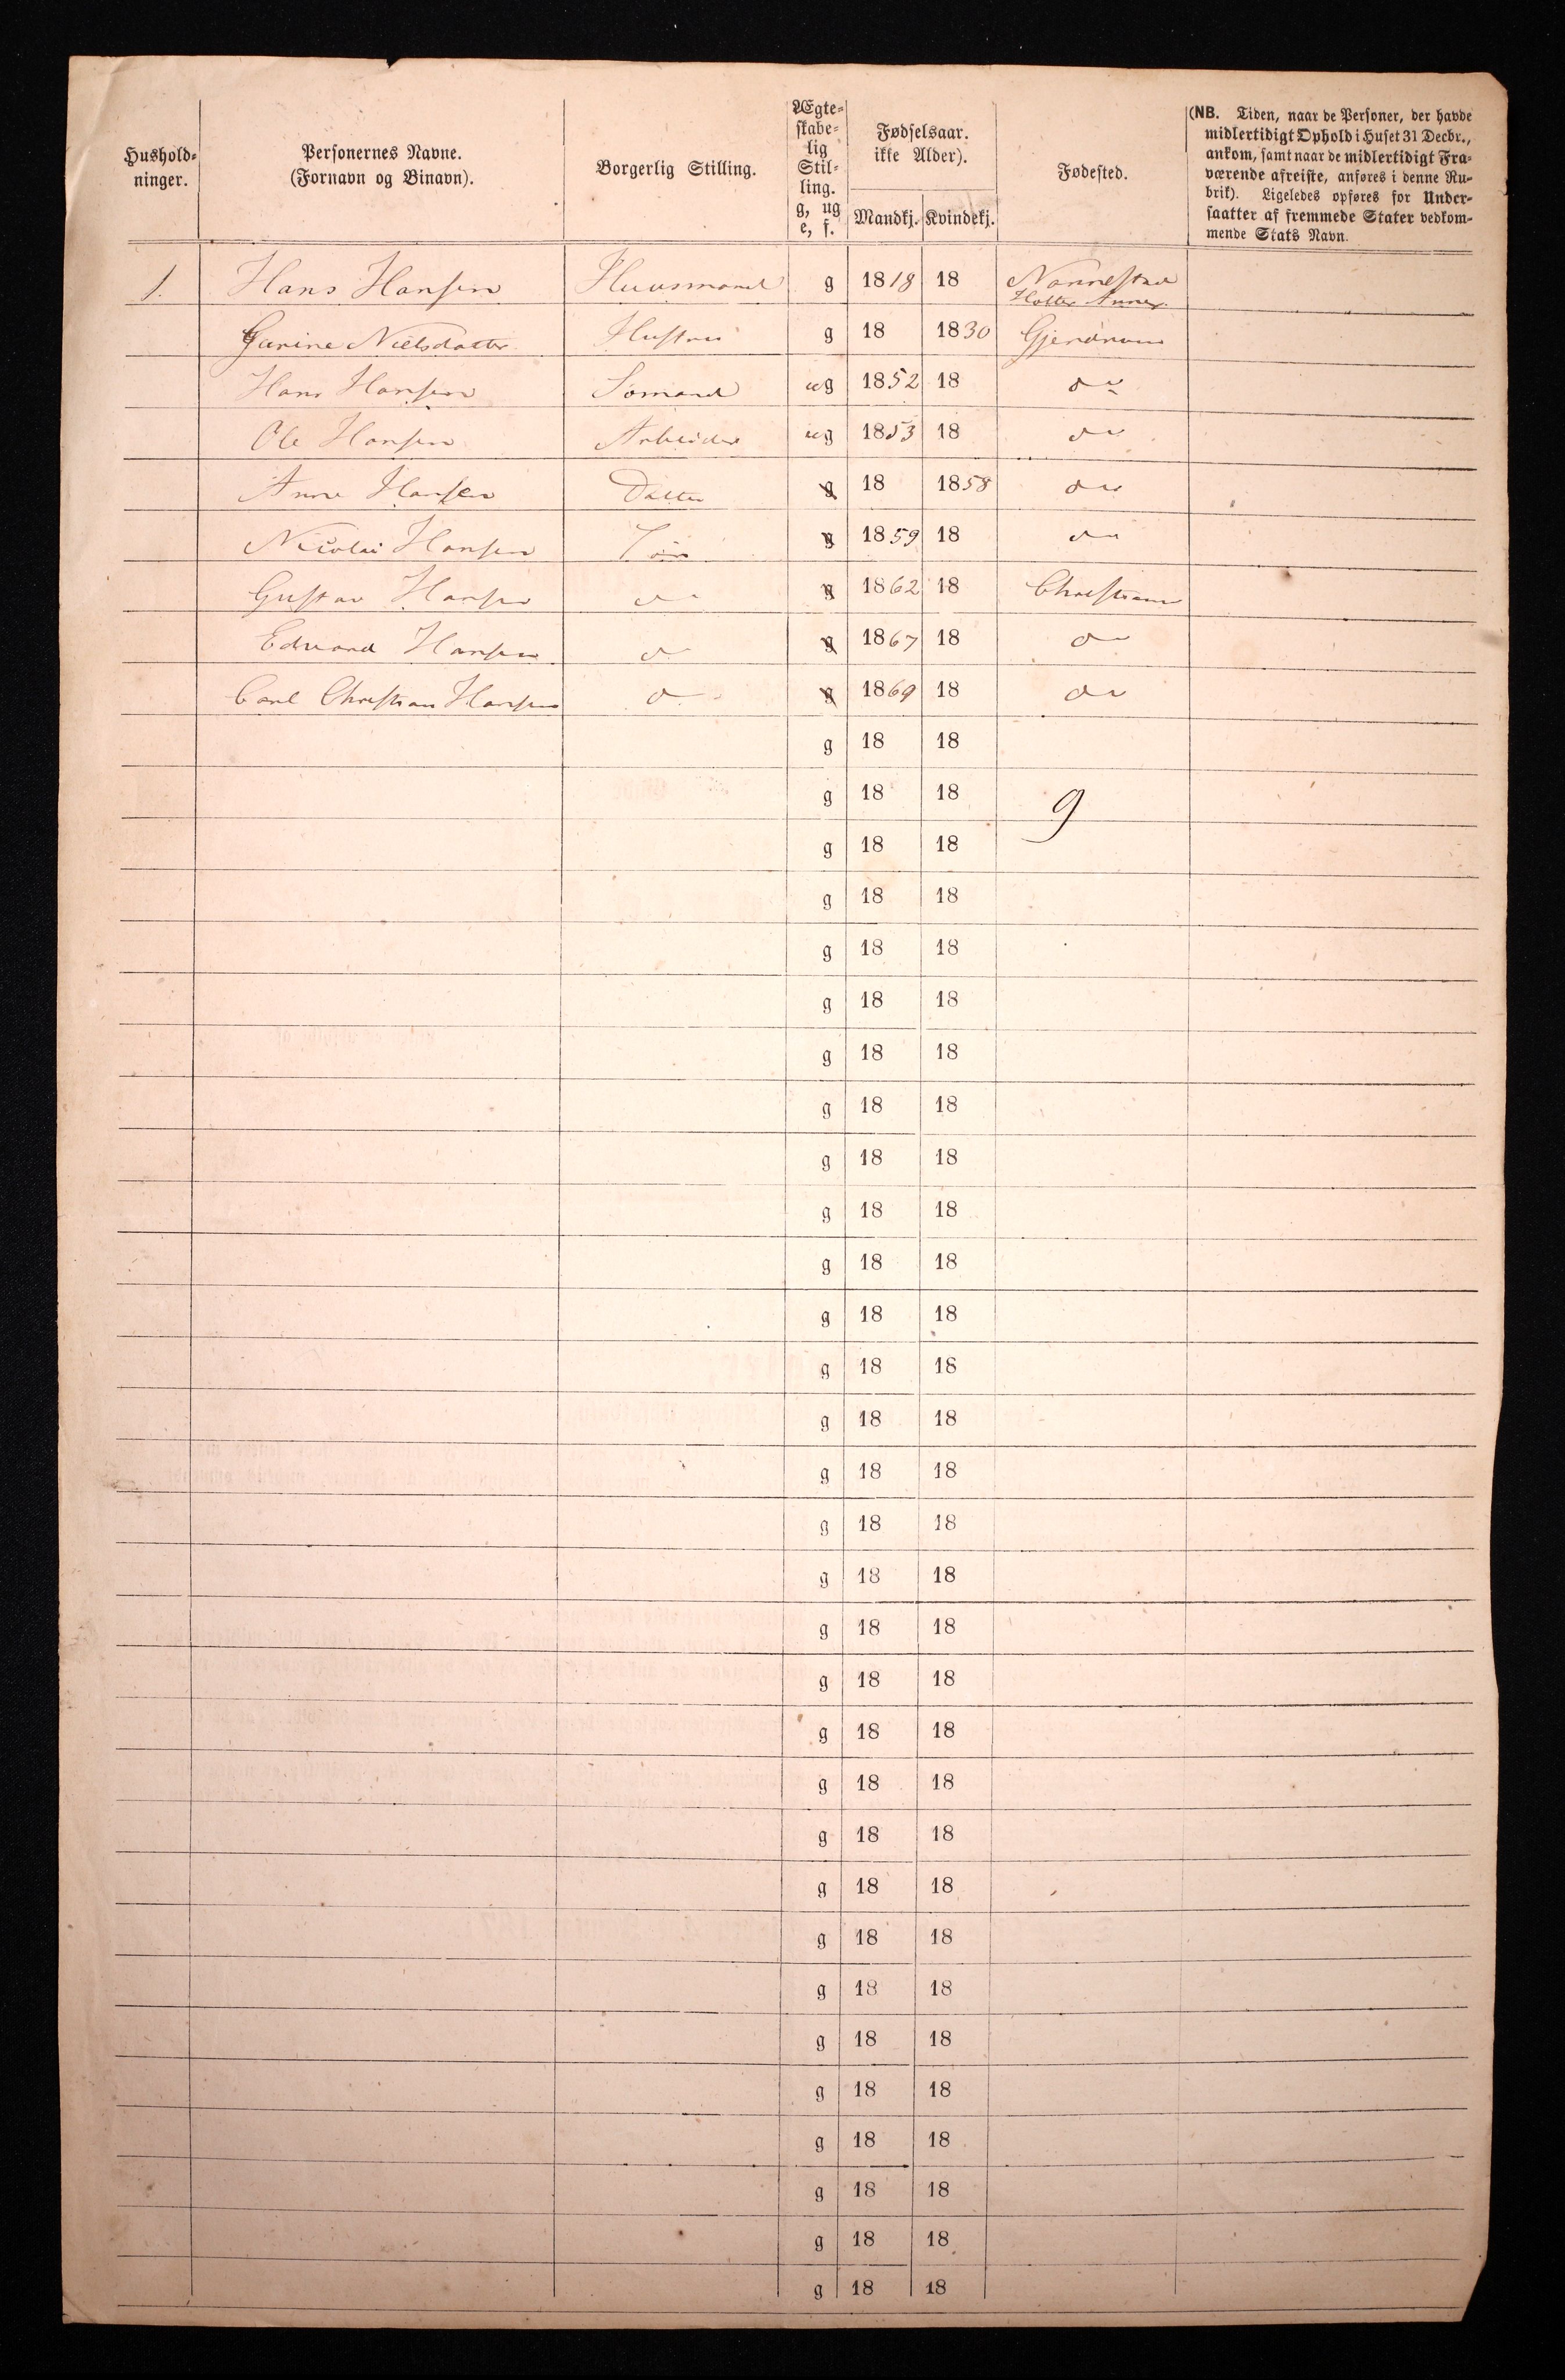 Hushold-
ninger.
Personernes Navne.
(Fornavn og Binavn).
Borgerlig Stilling.
Ægte-
skabe-
lig
Stil-
ling.
g, ug
e, f.
Fødselsaar.
ikke Alder).
Mandkj. Kvindekj.
Fødested.
(NB. Tiden, naar de Personer, der havde
midlertidigt Ophold i Huset 31 Decbr.,
ankom, samt naar de midlertidigt Fra-
værende afreiste, anføres i denne Ru-
brik). Ligeledes opføres for Under-
saatter af fremmede Stater vedkom-
mende Stats Navn.
1. Hans Hansen Huusmand g 1818 18 Nannestad
Holter Annex
Garine Nielsdatter Hustru g 18 1830 Gjerdrum
Hans Hansen Sømand ug 1852 18 do
Ole Hansen Arbeider ug 1853 18 do
Anne Hansen Datter g 18 1858 do
Nicolai Hansen Søn g 1859 18 do
Gustav Hansen do g 1862 18 Christiania
Edvard Hansen do g 1867 18 do
Carl Christian Hansen do g 1869 18 do
g 18 18
g 18 18 9
g 18 18
g 18 18
g 18 18
g 18 18
g 18 18
g 18 18
g 18 18
g 18 18
g 18 18
g 18 18
g 18 18
g 18 18
g 18 18
g 18 18
g 18 18
g 18 18
g 18 18
g 18 18
g 18 18
g 18 18
g 18 18
g 18 18
g 18 18
g 18 18
g 18 18
g 18 18
g 18 18
g 18 18
g 18 18